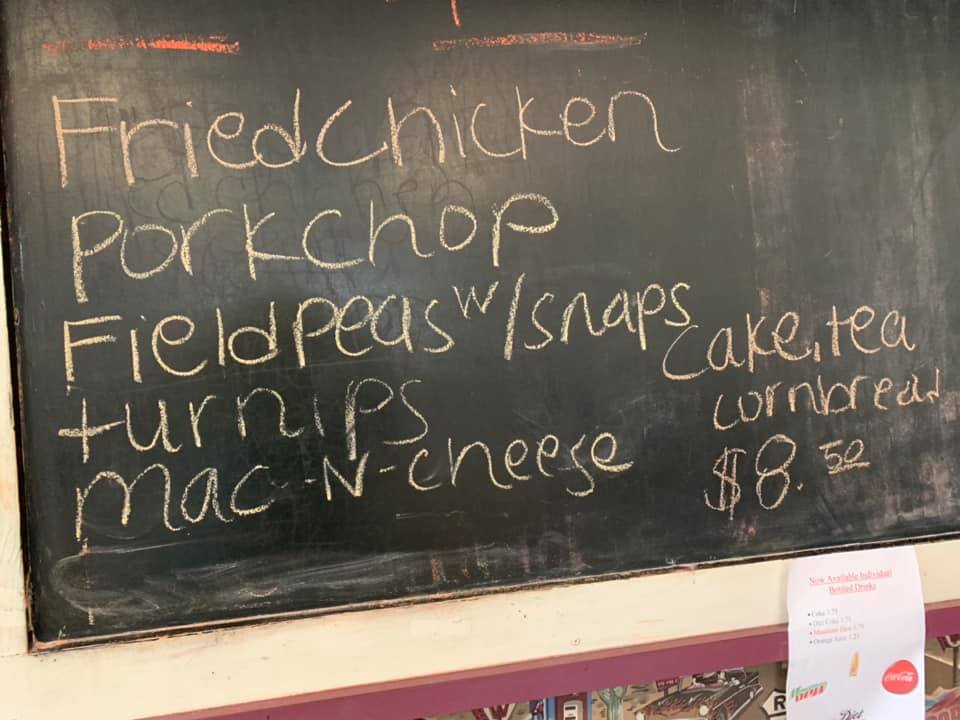 Fried Chicken
Porkchop
Field peas w/snaps
turnips
Mac-N-cheese
Cake, tea
cornbread
$8.50
Now Available Individual
Bottled Drinks
Coke 1.75
Diet Coke 1.75
Orange Juice 1.25
Coca-Cola
Diet